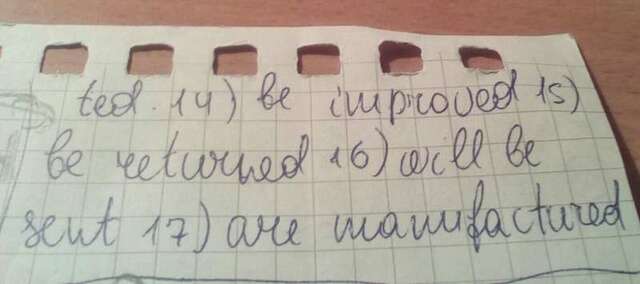 ted. 14) be improved 15)
be returned 16) will be
sent 17) are manufactured